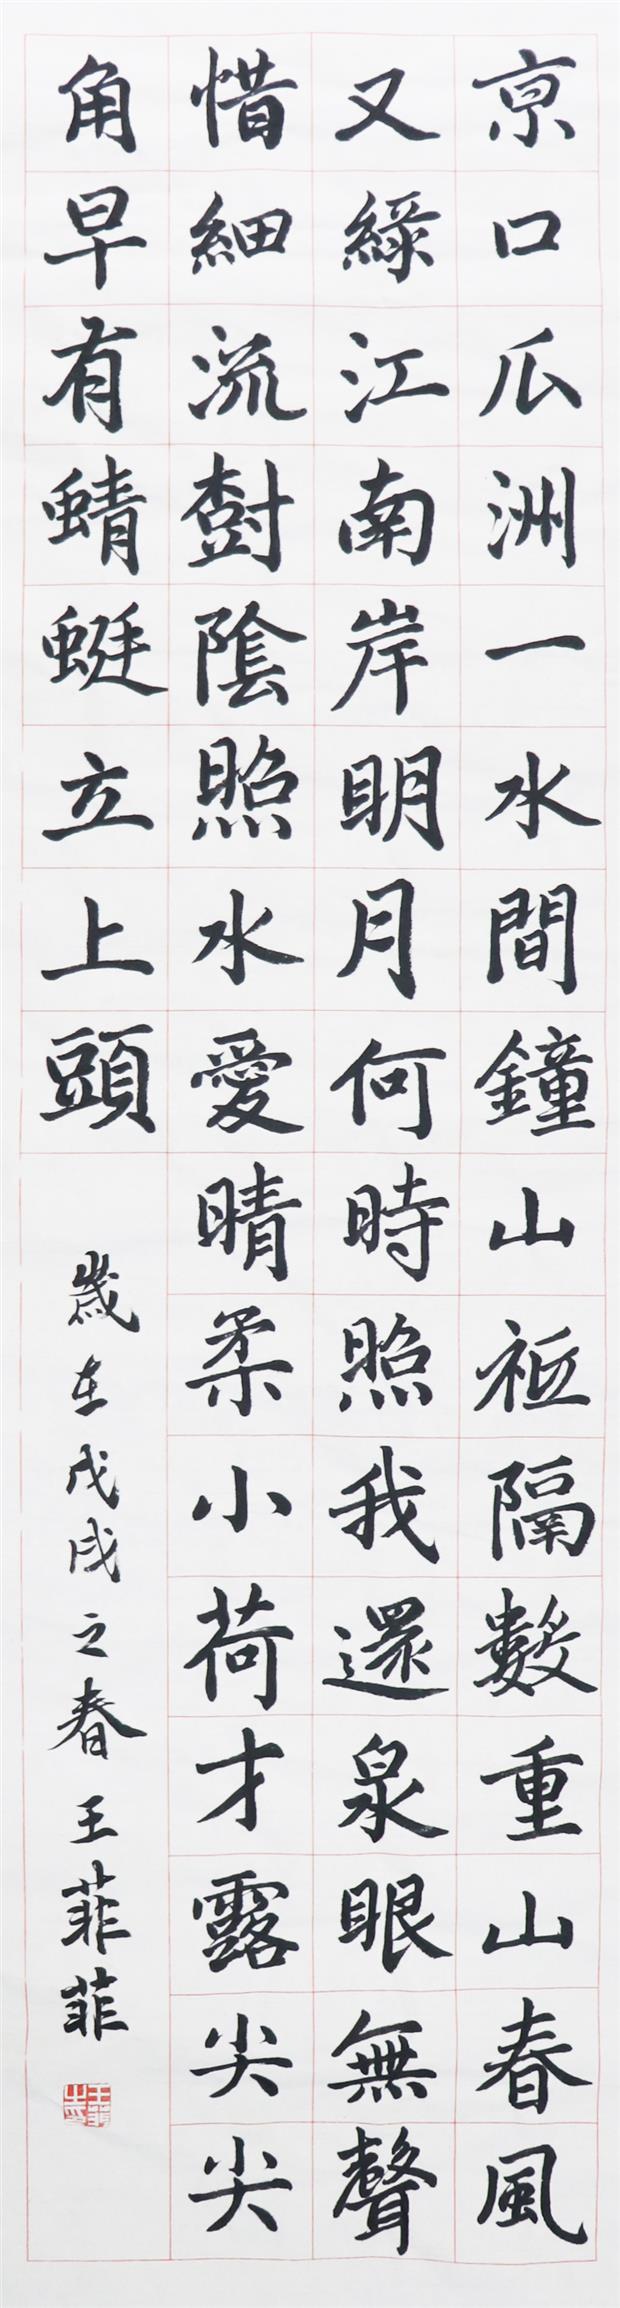 亰口瓜洲一水間鐘山祗隔數重山春風
又綠江南岸明月何時照我還泉眼無聲
惜細流樹陰照水愛晴柔小荷才露尖尖
角早有蜻蜓立上頭
歲在戊戌之春王菲菲